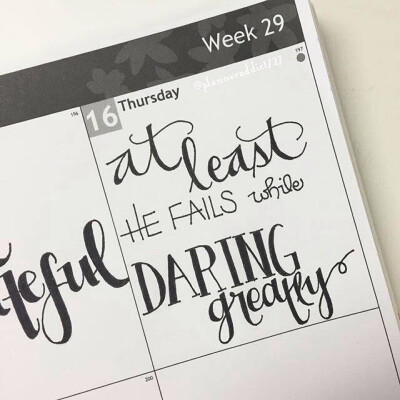 Week 29
196
16 Thursday
197
at
least
HE FAILS while
DARING
greatly
teful
200